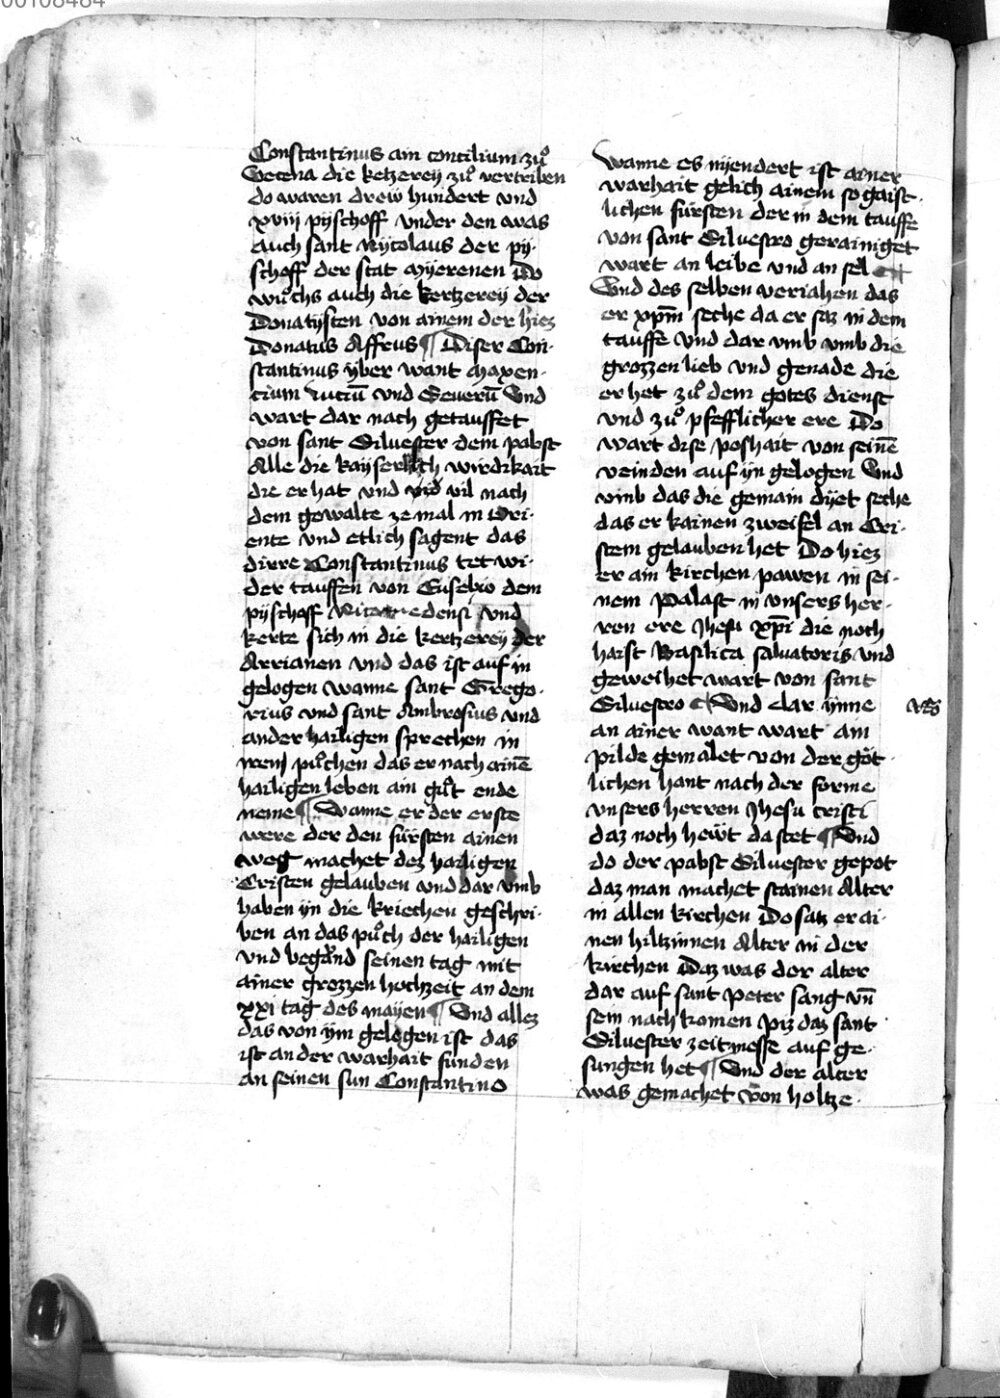 00108484
Constantinus ain concilium zuͦ
Vecena die ketzereÿ zuͦ vertriben
do waren dreẅ hundert vnd
xviij pyschoff vnder den was
auch sant Nycolaus der py-
schoff der stat Myerenen Do
wuͦchs auch die kertzereÿ der
Donatysten von ainem der hiez
Donatus Affrus ¶ Diser Con-
stantinus yber want Maxen-
cium Luciū vnd Seuerū Vnd
wart dar nach getauffet
von sant Siluester dem pabst
Alle die kayserlich wirdikait
die er hat vnd vil nach
dem gewalte ze mal in Ori-
ente vnd etlich sagent das
dirre Constantinus tet wi-
der tauffen von Eusebio dem
pyschoff vnd
kerte sich in die kertzereÿ der
Arrianen vnd das ist auf in
gelogen wanne sant Grego-
rius vnd sant Ambrosius vnd
ander hailigen sprechen in
iren puͦchen das er nach ainē
hailigen leben ain guͦt ende
neme ¶ Wanne er der erste
were der den fürsten ainen
weg machet dez hailigen
Cristen gelauben vnd dar vmb
haben yn die kriechen geschri-
ben an das puͦch der hailigen
vnd begand seinen tag mit
ainer grozzen hochzeit an dem
xxi tag des mayen ¶ Vnd allez
das von ym gelogen ist das
ist an der warhait funden
an seinen sun Constantino
Wanne es nyendert ist ainer
warhait gelich ainem so gaist-
lichen fürsten der in dem tauffe
von sant Siluestro gerainiget
wart an leibe vnd an sel ¶
Vnd des selben veriahen das
er xp̄m seche da er saz in dem
tauffe vnd dar vmb vmb die
grozzen lieb vnd genade die
er het zuͦ dem gotes dienst
vnd zuͦ pfefflicher ere Do
wart dise poshait von seinē
veinden auf yn gelogen Vnd
vmb das die gemain dyet seche
das er kainen zweifel an Cri-
stem gelauben het Do hiez
er ain kirchen pawen in sei-
nem Palast in vnsers her-
ren ere Jhesu xp̄i die noch
haist Basilica saluatoris vnd
geweihet wart von sant
Siluestro ¶ Vnd dar ynne
an ainer want wart ain
pilde gemalet von der göt-
lichen hant nach der forme
vnsers herren Jhesu cristi
daz noch heẅt da stet ¶ Vnd
do der pabst Siluester gepot
daz man machet stainen Alter
in allen kirchen Do satz er ai-
nen hiltzinnen Alter in der
kirchen Daz was der alter
dar auf sant peter sang vn̄
sein nach komen piz daz sant
Siluester zeit messe auf ge-
sungen het ¶ Vnd der alter
was gemachet von holtze